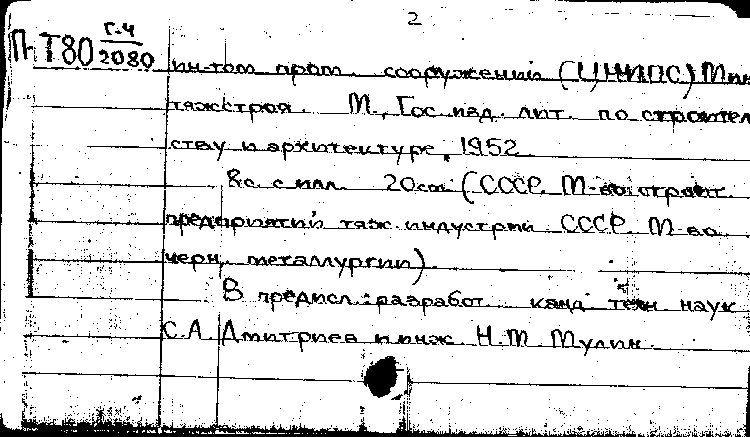 2
П-Т80 Г-4/2080
ин-том пром. сооружений (ЦНИПС) Мин
тяжстроя. М., Гос. изд. лит. по строител
ству и архитектуре, 1952
8с. с илл. 20см (СССР. М-во строит.
предприятий тяж. индустрии СССР. М-во
черн. металлургии).
В предисл.: разработ. канд. техн. наук
С.А. Дмитриев и инж. Н.М. Мулин.